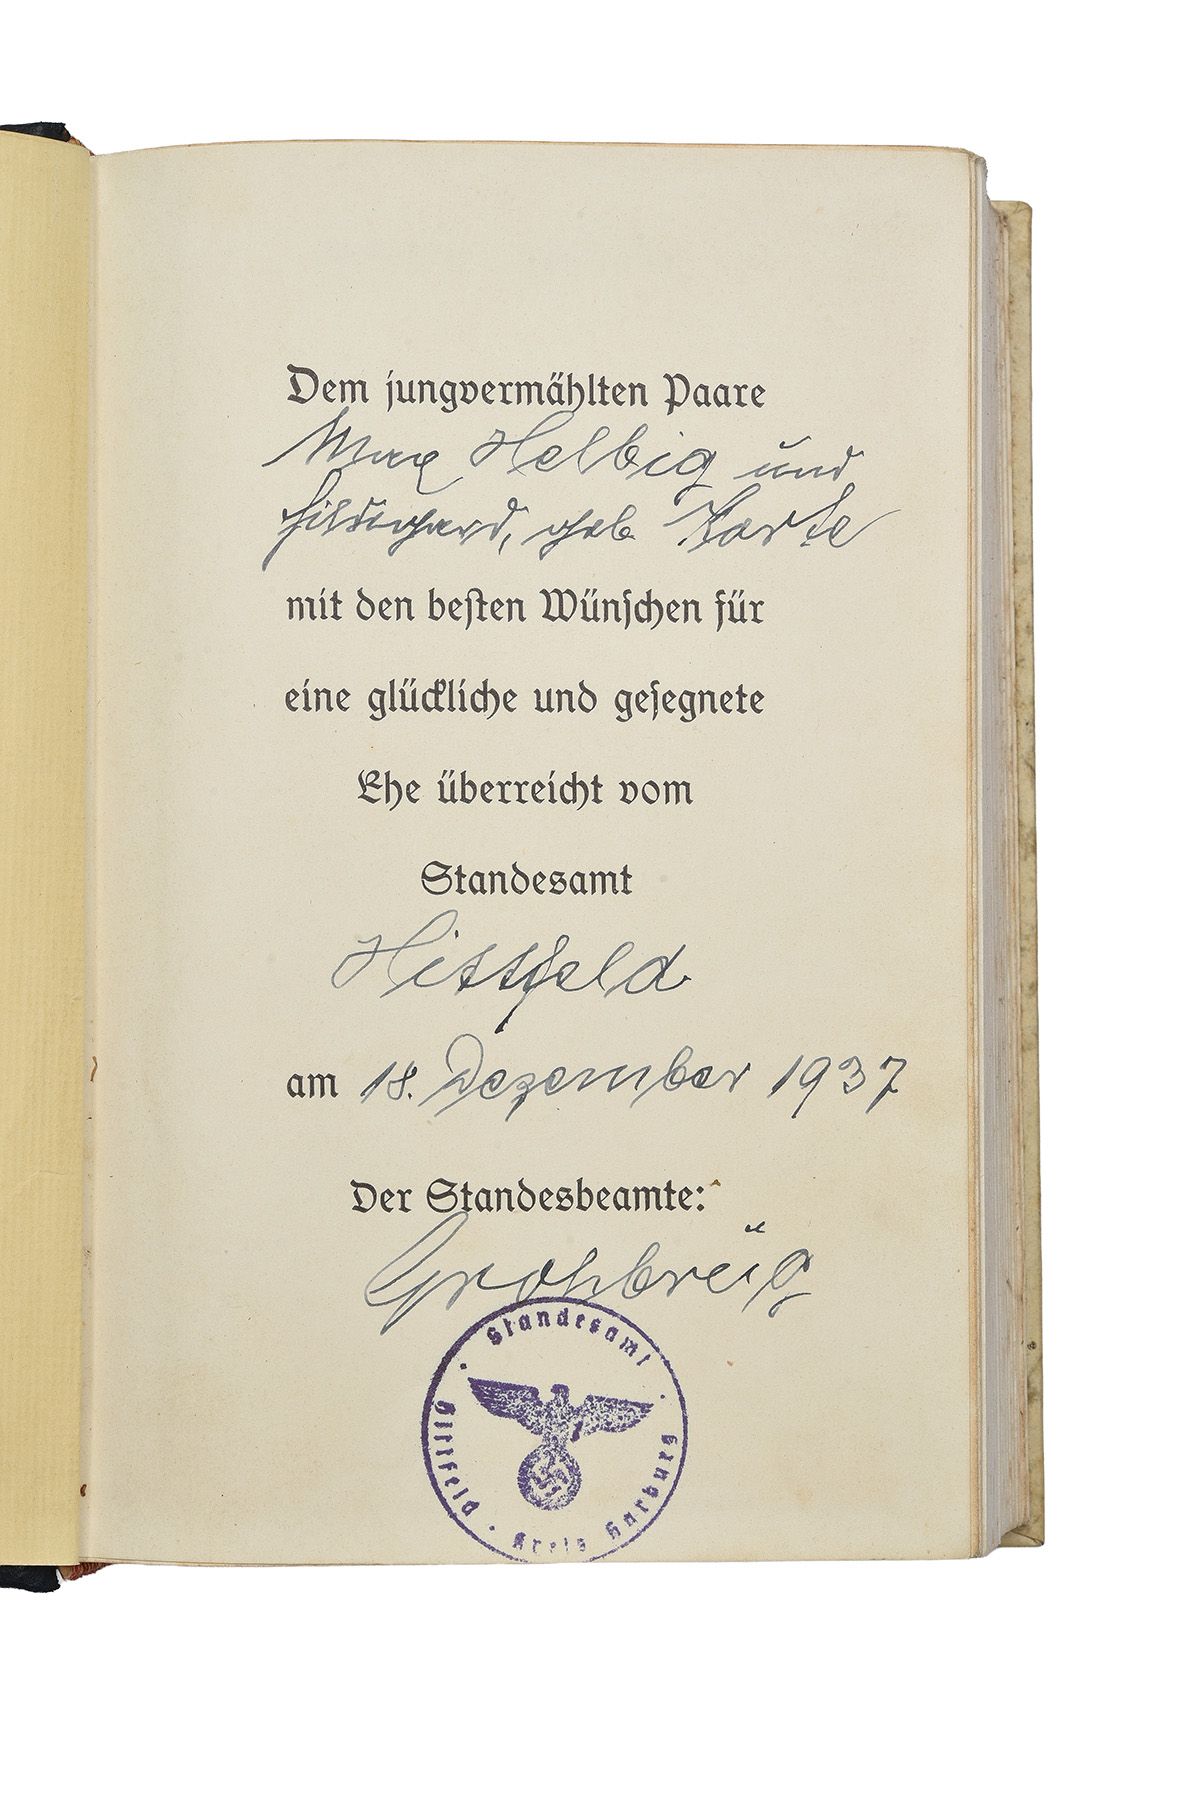 Dem jungvermählten Paare
Max Helbig und
Hildegard, geb. Korte
mit den besten Wünschen für
eine glückliche und gesegnete
Ehe überreicht vom
Standesamt
Hittfeld
am 18. Dezember 1937
Der Standesbeamte:
Standesamt
Hittfeld · Kreis Harburg